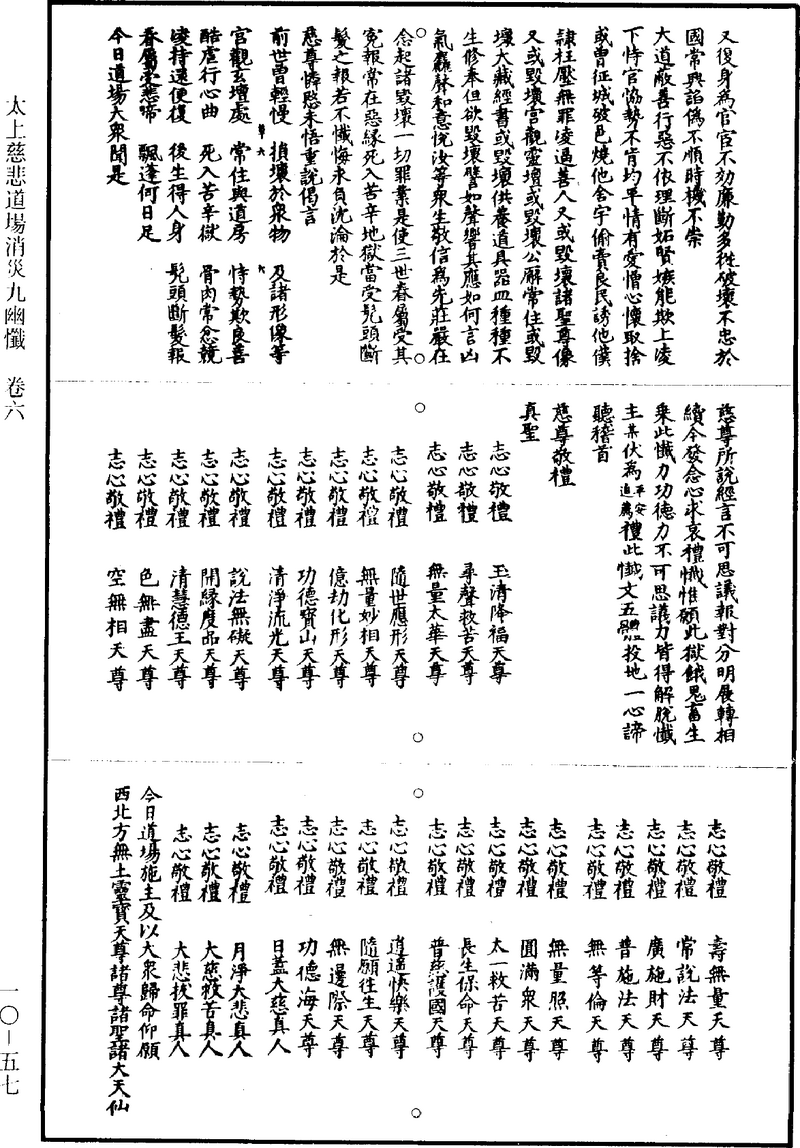 太上慈悲道場消災九幽懺　卷六
一〇－五七
又復身為官官不効廉勤多性破壞不忠於
國常興諂偽不順時機不崇
大道蔽善行惡不依理斷妬賢嫉能欺上凌
下恃官恊勢不肯均平情有愛憎心懷取捨
或曾征城破邑燒他舍宇偷賣良民誘他僕
隸枉壓無罪凌逼善人又或毀壞諸聖尊像
又或毀壞宮觀靈壇或毀壞公廨常住或毀
壞大藏經書或毀壞供養道具器皿種種不
生修奉但欲毀壞譬如聲響其應如何言凶
氣麤聲和意悅汝等衆生敬信為先莊嚴在
念起諸毀壞一切罪業是使三世眷屬受其
寃報常在惡緣死入苦辛地獄當受髠頭斷
髮之報若不懺悔永負沈淪於是
慈尊憐愍未悟重說偈言
前世曾輕慢　損壞於衆物　及諸形像等
第六　六
官觀玄壇處　常住與道房　恃勢欺良善
酷虐行心曲　死入苦辛獄　骨肉常忿競
凌持還便復　後生得人身　髠頭斷髮報
眷屬受悲啼　飄蓬何日足
今日道場大衆聞是
慈尊所說經言不可思議報對分明展轉相
續今發念心求哀禮懺惟願此獄餓鬼畜生
乘此懺力功德力不可思議力皆得解脫懺
主某伏為平安追薦禮此懺文五體投地一心諦
聽稽首
慈尊敬禮
真聖
志心敬禮　玉清降福天尊
志心敬禮　尋聲救苦天尊
志心敬禮　無量太華天尊
志心敬禮　隨世應形天尊
志心敬禮　無量妙相天尊
志心敬禮　億劫化形天尊
志心敬禮　功德寶山天尊
志心敬禮　清淨流光天尊
志心敬禮　說法無礙天尊
志心敬禮　開緣度品天尊
志心敬禮　清慧德王天尊
志心敬禮　色無盡天尊
志心敬禮　空無相天尊
志心敬禮　壽無量天尊
志心敬禮　常說法天尊
志心敬禮　廣施財天尊
志心敬禮　普施法天尊
志心敬禮　無等倫天尊
志心敬禮　無量照天尊
志心敬禮　圓滿衆天尊
志心敬禮　太一救苦天尊
志心敬禮　長生保命天尊
志心敬禮　普慈護國天尊
志心敬禮　逍遙快樂天尊
志心敬禮　隨願往生天尊
志心敬禮　無邊際天尊
志心敬禮　功德海天尊
志心敬禮　日蓋大慈真人
志心敬禮　月淨大悲真人
志心敬禮　大慈救苦真人
志心敬禮　大悲拔罪真人
今日道場施主及以大衆歸命仰願
西北方無上靈寶天尊諸尊諸聖諸大天仙